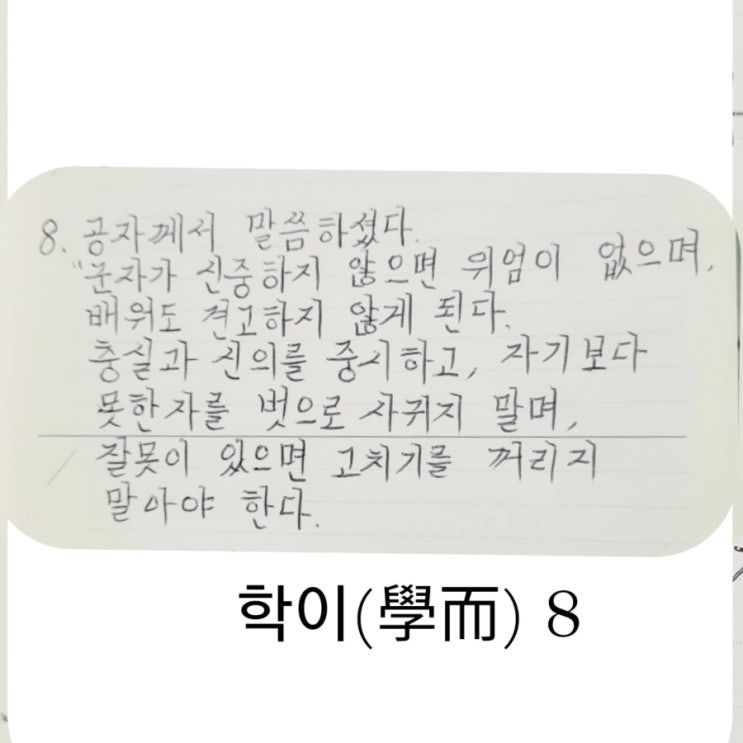 8. 공자께서 말씀하셨다.
"군자가 신중하지 않으면 위엄이 없으며,
배워도 견고하지 않게 된다.
충실과 신의를 중시하고, 자기보다
못한자를 벗으로 사귀지 말며,
잘못이 있으면 고치기를 꺼리지
말아야 한다.
학이(學而) 8